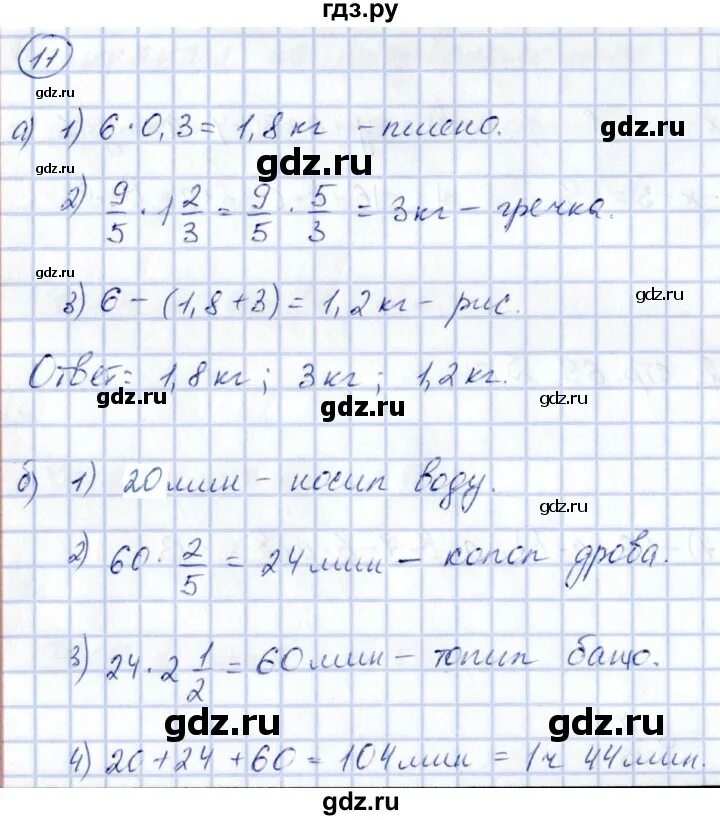 гдз.ру
11
gdz.ru
а) 1) 6 · 0,3 = 1,8 кг – пшено.
gdz.ru
gdz.ru
gdz.ru
2) 9/5 · 1 2/3 = 9/5 · 5/3 = 3 кг – гречка.
gdz.ru
gdz.ru
3) 6 – (1,8 + 3) = 1,2 кг – рис.
Ответ: 1,8 кг; 3 кг; 1,2 кг.
gdz.ru
gdz.ru
gdz.ru
б) 1) 20 мин – носил воду.
gdz.ru
2) 60 · 2/5 = 24 мин – колол дрова.
3) 24 · 2 1/2 = 60 мин – топил баню.
gdz.ru
gdz.ru
4) 20 + 24 + 60 = 104 мин = 1 ч 44 мин.
gdz.ru